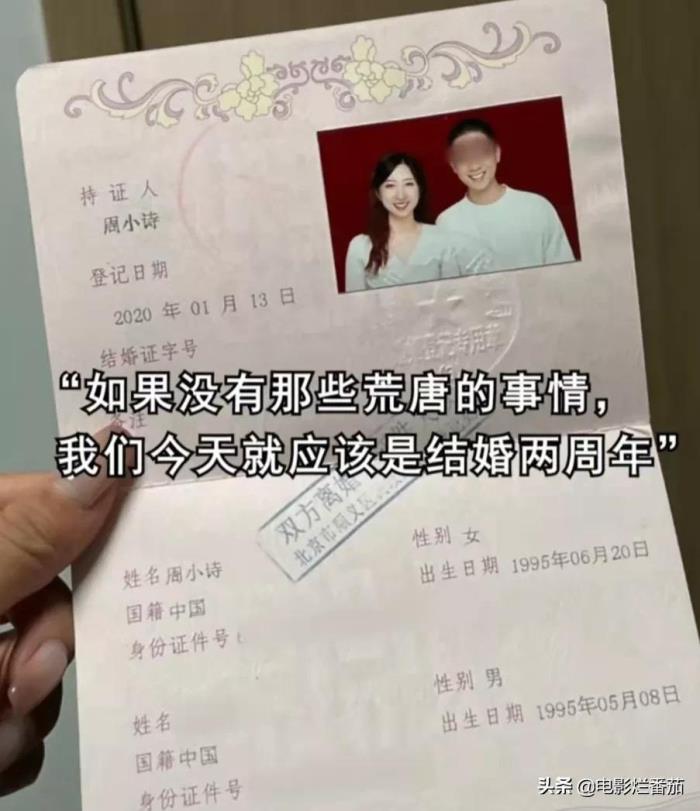 持证人
周小诗
登记日期
2020 年 01 月 13 日
结婚证字号
备注
“如果没有那些荒唐的事情，
我们今天就应该是结婚两周年”
双方离婚
北京市顺义区
姓名 周小诗
性别 女
国籍 中国
出生日期 1995年06月20日
身份证件号
姓名
性别 男
国籍 中国
出生日期 1995年05月08日
身份证件号
头条 @电影烂番茄